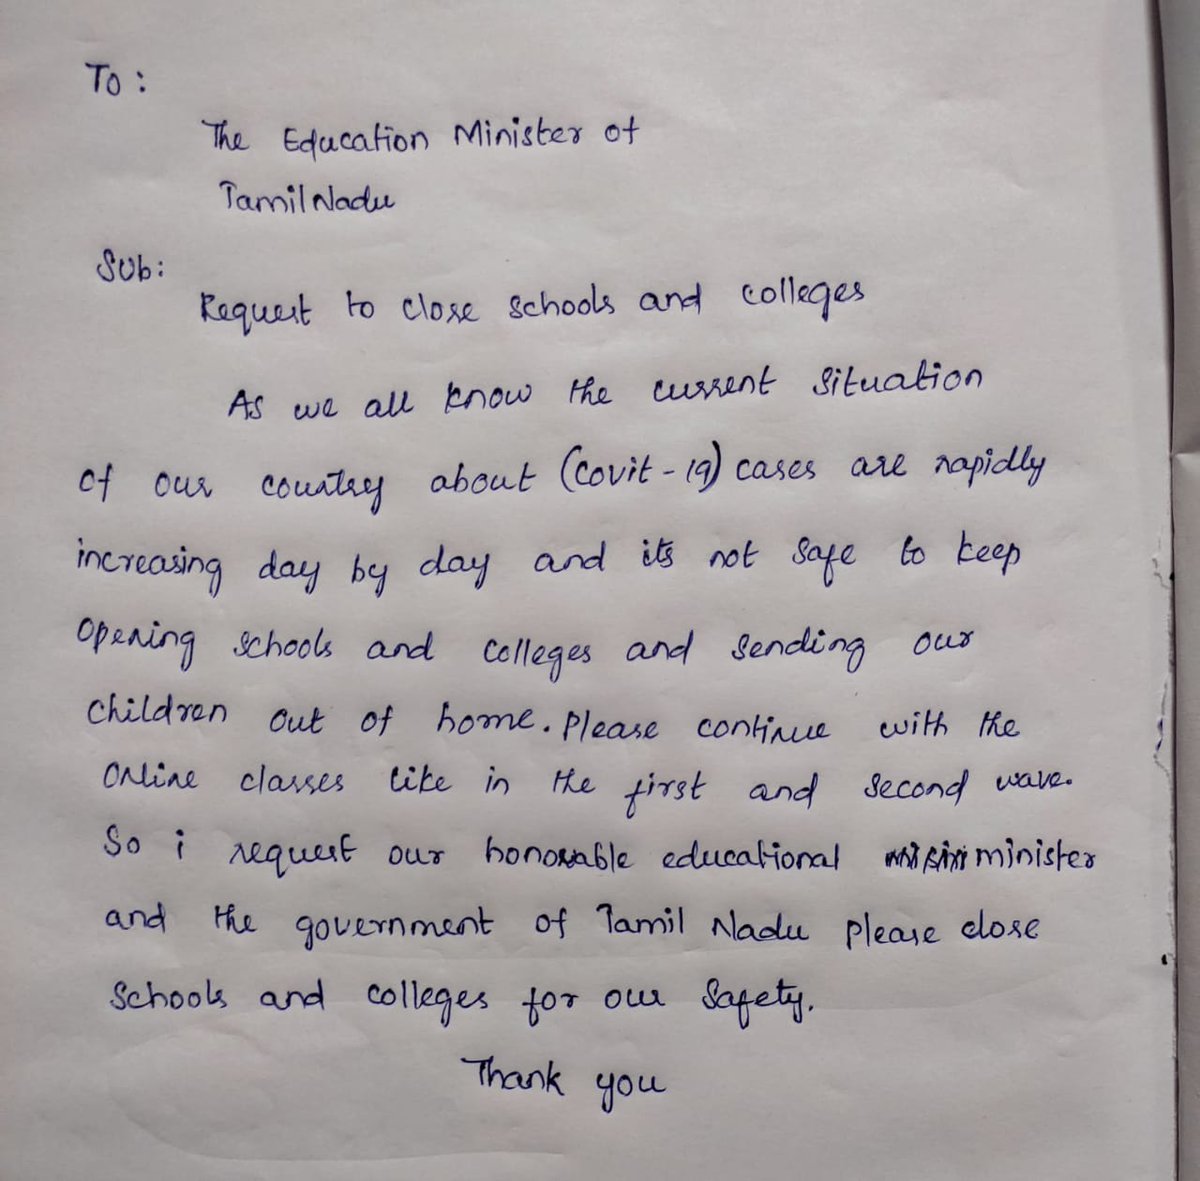 To :
The Education Minister of
Tamil Nadu
Sub:
Request to close schools and colleges
As we all know the current situation
of our country about (Covit - 19) cases are rapidly
increasing day by day and its not safe to keep
opening schools and colleges and sending our
children out of home. Please continue with the
online classes like in the first and second wave.
So i request our honorable educational minister
and the government of Tamil Nadu please close
schools and colleges for our safety.
Thank you